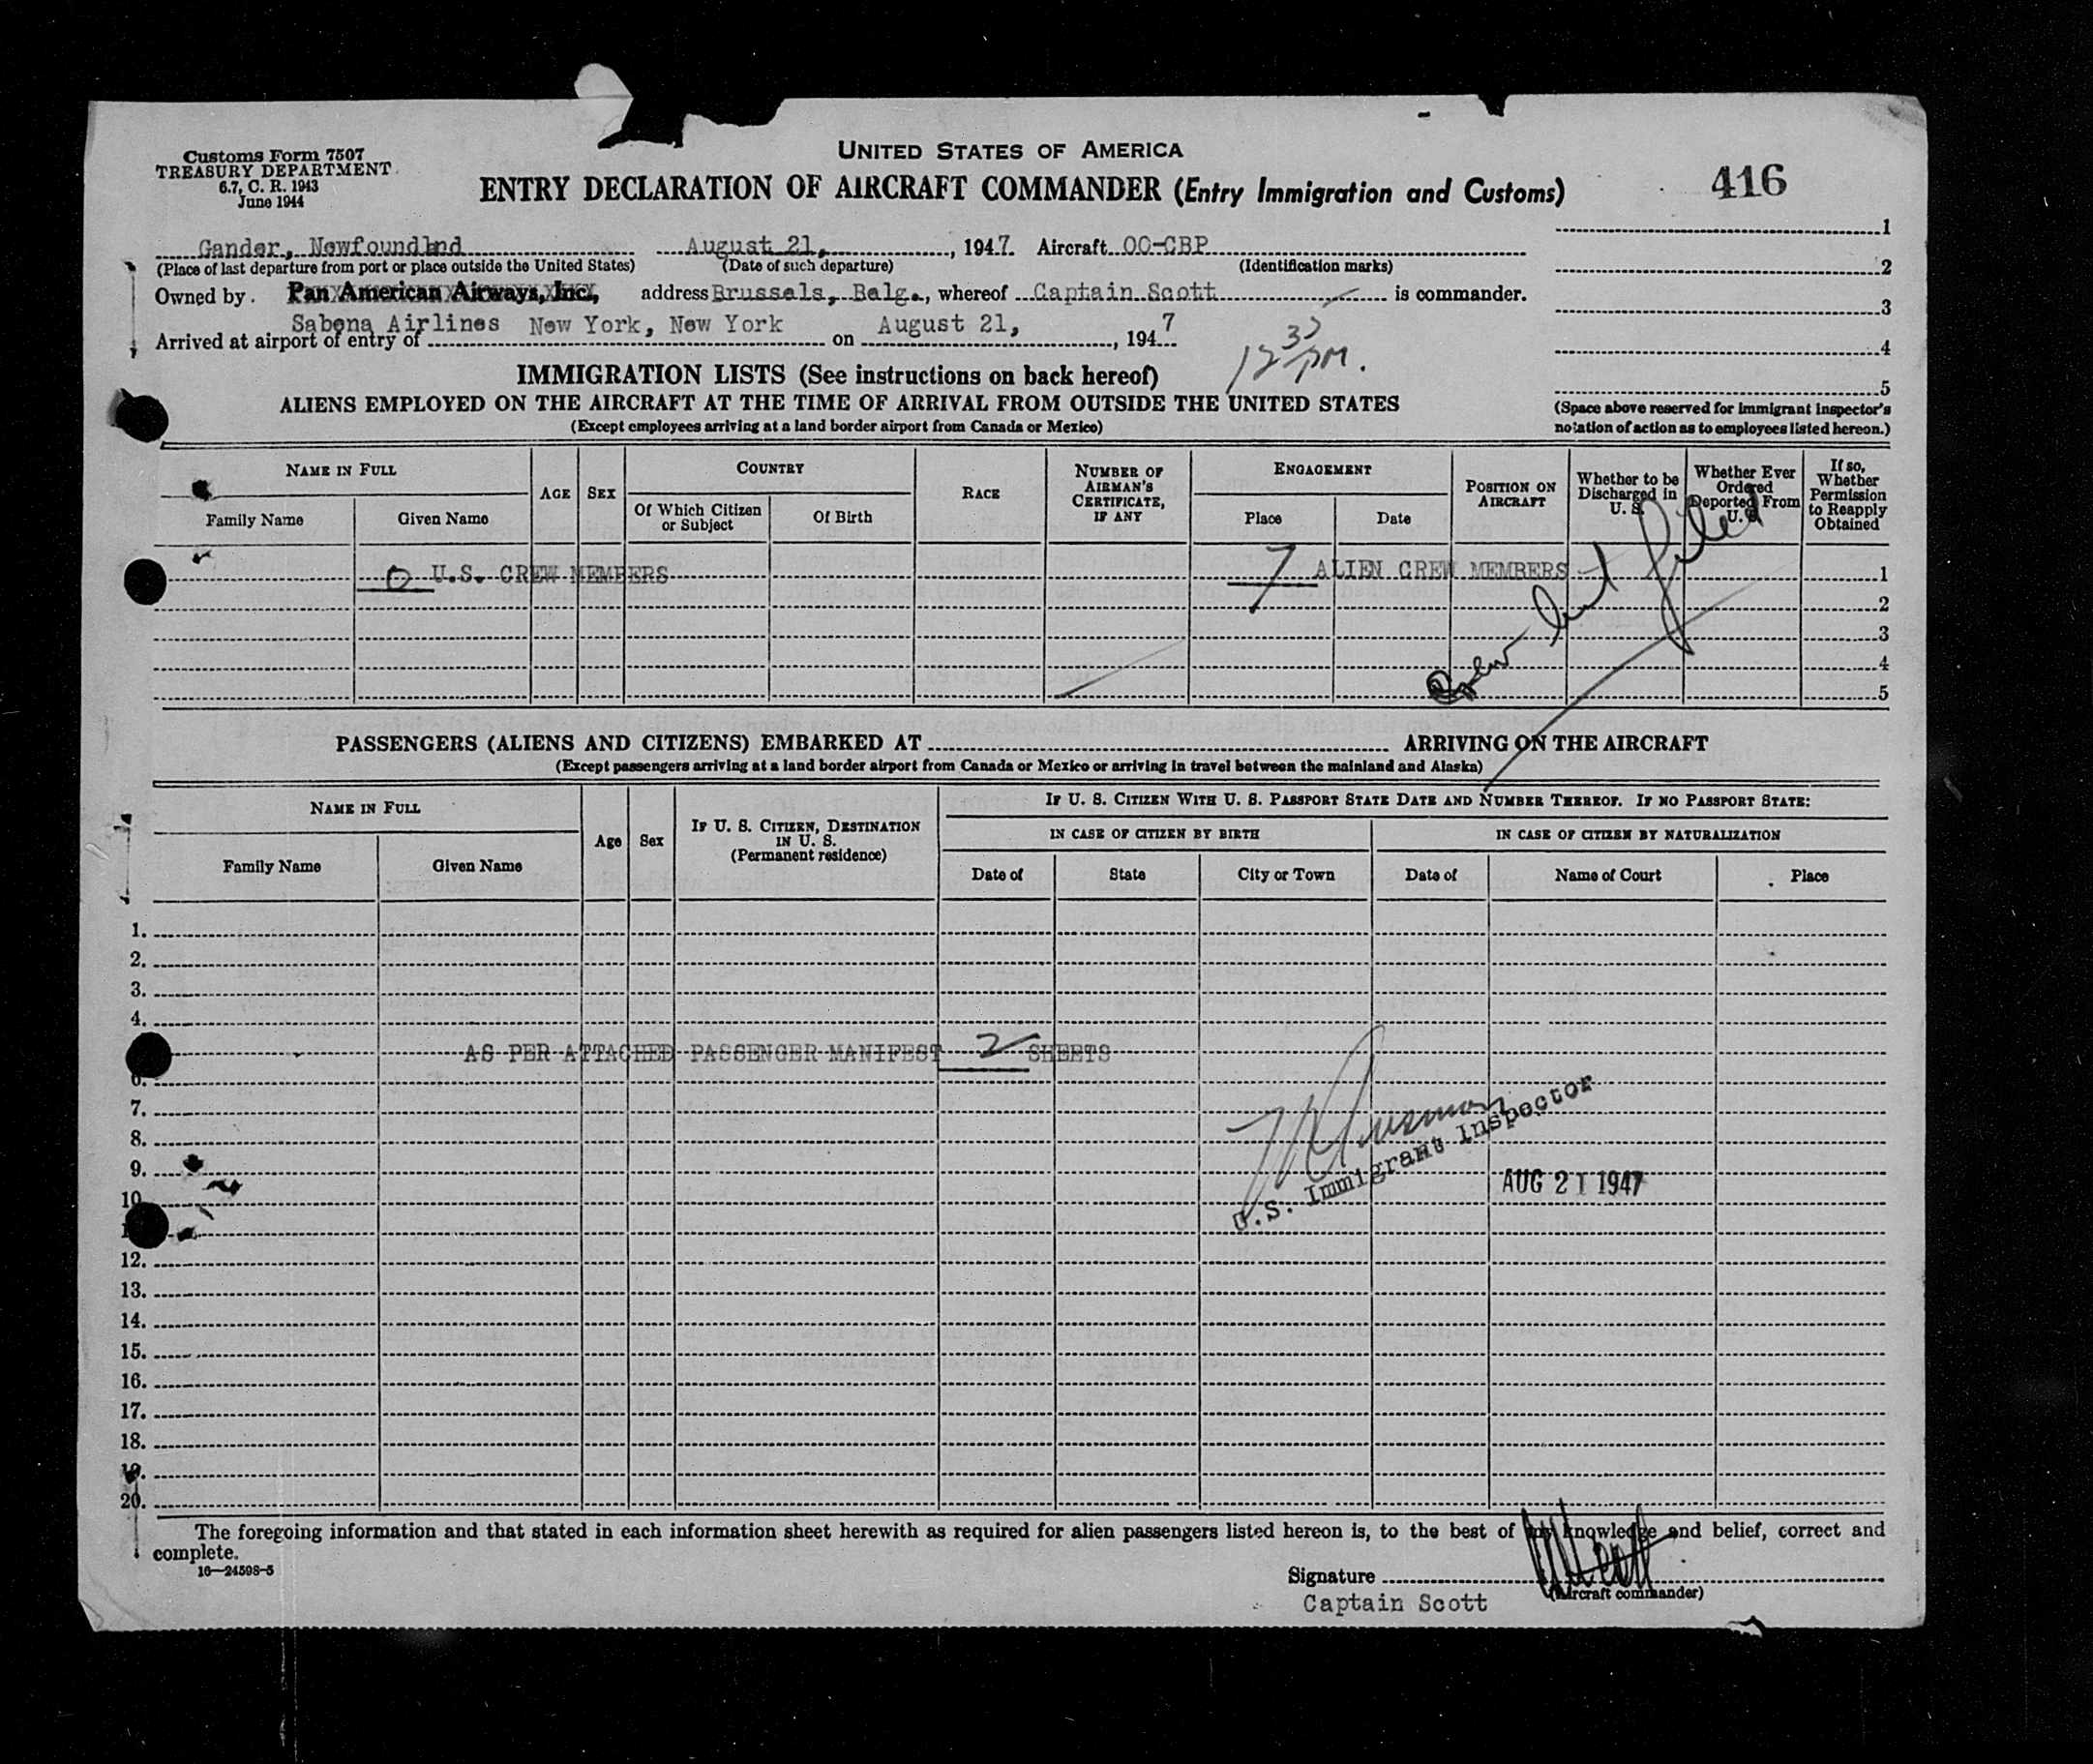 Customs Form 7507
TREASURY DEPARTMENT
6.7, C. R. 1943
June 1944
UNITED STATES OF AMERICA
ENTRY DECLARATION OF AIRCRAFT COMMANDER (Entry Immigration and Customs)
416
Gander, Newfoundlnd August 21, , 1947. Aircraft OO-CBP
(Place of last departure from port or place outside the United States) (Date of such departure) (Identification marks)
Owned by Pan American Airways, Inc., address Brussels, Belg., whereof Captain Scott is commander.
Sabena Airlines New York, New York August 21, 7
Arrived at airport of entry of on , 194
12 35 PM.
1
2
3
4
5
(Space above reserved for immigrant inspector's
notation of action as to employees listed hereon.)
IMMIGRATION LISTS (See instructions on back hereof)
ALIENS EMPLOYED ON THE AIRCRAFT AT THE TIME OF ARRIVAL FROM OUTSIDE THE UNITED STATES
(Except employees arriving at a land border airport from Canada or Mexico)
NAME IN FULL
Family Name
Given Name
AGE
SEX
COUNTRY
Of Which Citizen
or Subject
Of Birth
RACE
NUMBER OF
AIRMAN'S
CERTIFICATE,
IF ANY
ENGAGEMENT
Place
Date
POSITION ON
AIRCRAFT
Whether to be
Discharged in
U. S.
Whether Ever
Ordered
Deported From
U. S.
If so,
Whether
Permission
to Reapply
Obtained
0 U.S. CREW MEMBERS 7 ALIEN CREW MEMBERS 1
2
3
4
5
Crew list filed
PASSENGERS (ALIENS AND CITIZENS) EMBARKED AT ARRIVING ON THE AIRCRAFT
(Except passengers arriving at a land border airport from Canada or Mexico or arriving in travel between the mainland and Alaska)
NAME IN FULL
Family Name
Given Name
Age
Sex
IF U. S. CITIZEN, DESTINATION
IN U. S.
(Permanent residence)
IF U. S. CITIZEN WITH U. S. PASSPORT STATE DATE AND NUMBER THEREOF. IF NO PASSPORT STATE:
IN CASE OF CITIZEN BY BIRTH
IN CASE OF CITIZEN BY NATURALIZATION
Date of
State
City or Town
Date of
Name of Court
Place
1.
2.
3.
4.
AS PER ATTACHED PASSENGER MANIFEST 2 SHEETS
6.
7.
8.
9.
10
U.S. Immigrant Inspector
AUG 21 1947
12.
13.
14.
15.
16.
17.
18.
19.
20.
The foregoing information and that stated in each information sheet herewith as required for alien passengers listed hereon is, to the best of my knowledge and belief, correct and
complete.
16—24598-5
Signature
(Aircraft commander)
Captain Scott